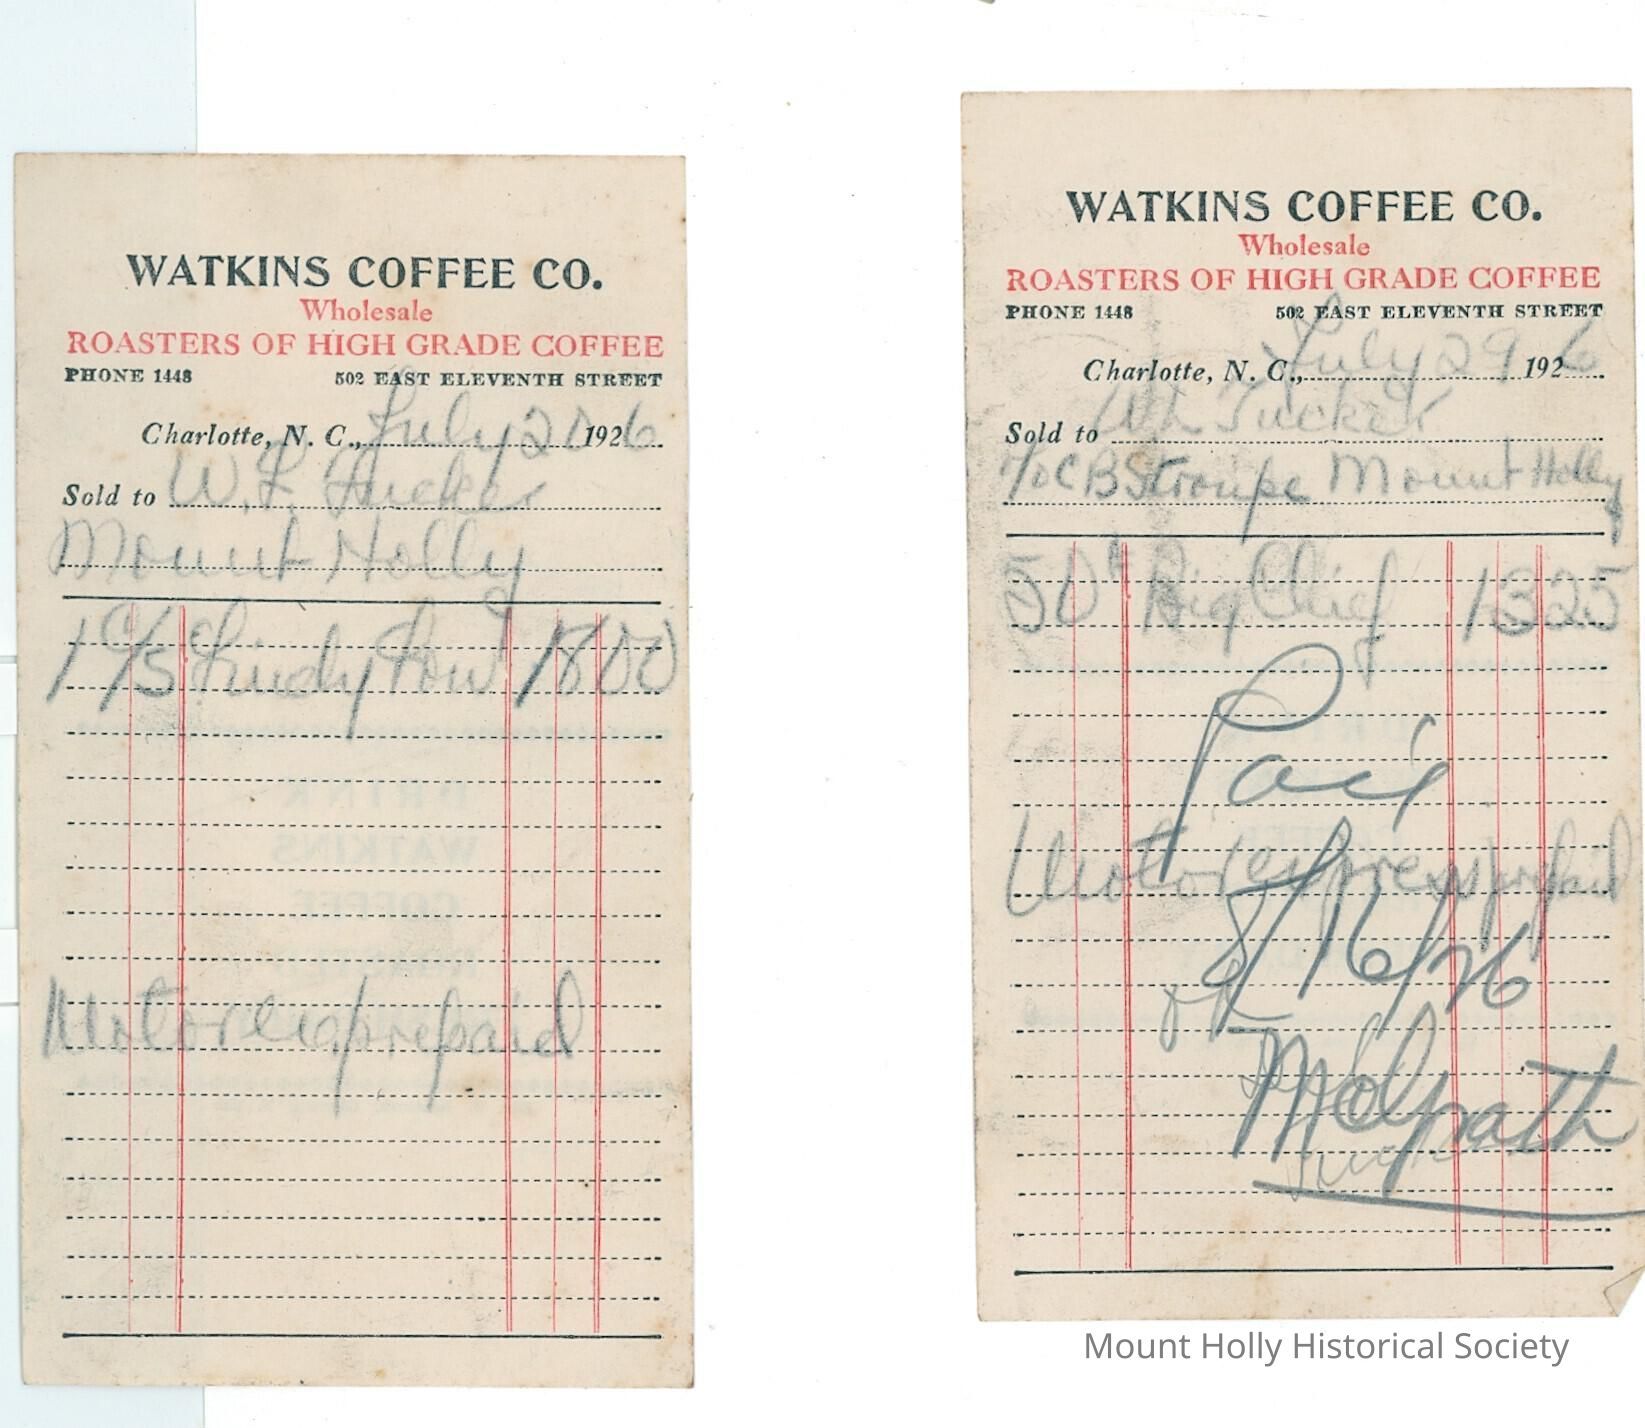 WATKINS COFFEE CO.
Wholesale
ROASTERS OF HIGH GRADE COFFEE
PHONE 1448 502 EAST ELEVENTH STREET
Charlotte, N. C., July 20 1926
Sold to W. L. Tucker
Mount Holly
1 C/S 1800
Motor ex prepaid
WATKINS COFFEE CO.
Wholesale
ROASTERS OF HIGH GRADE COFFEE
PHONE 1448 502 EAST ELEVENTH STREET
Charlotte, N. C., July 29 1926
Sold to Tucker
c/o C B Stroupe Mount Holly
50# Big Chief 1325
Paid
Motor express prepaid
8/16/26
Mount Holly Historical Society